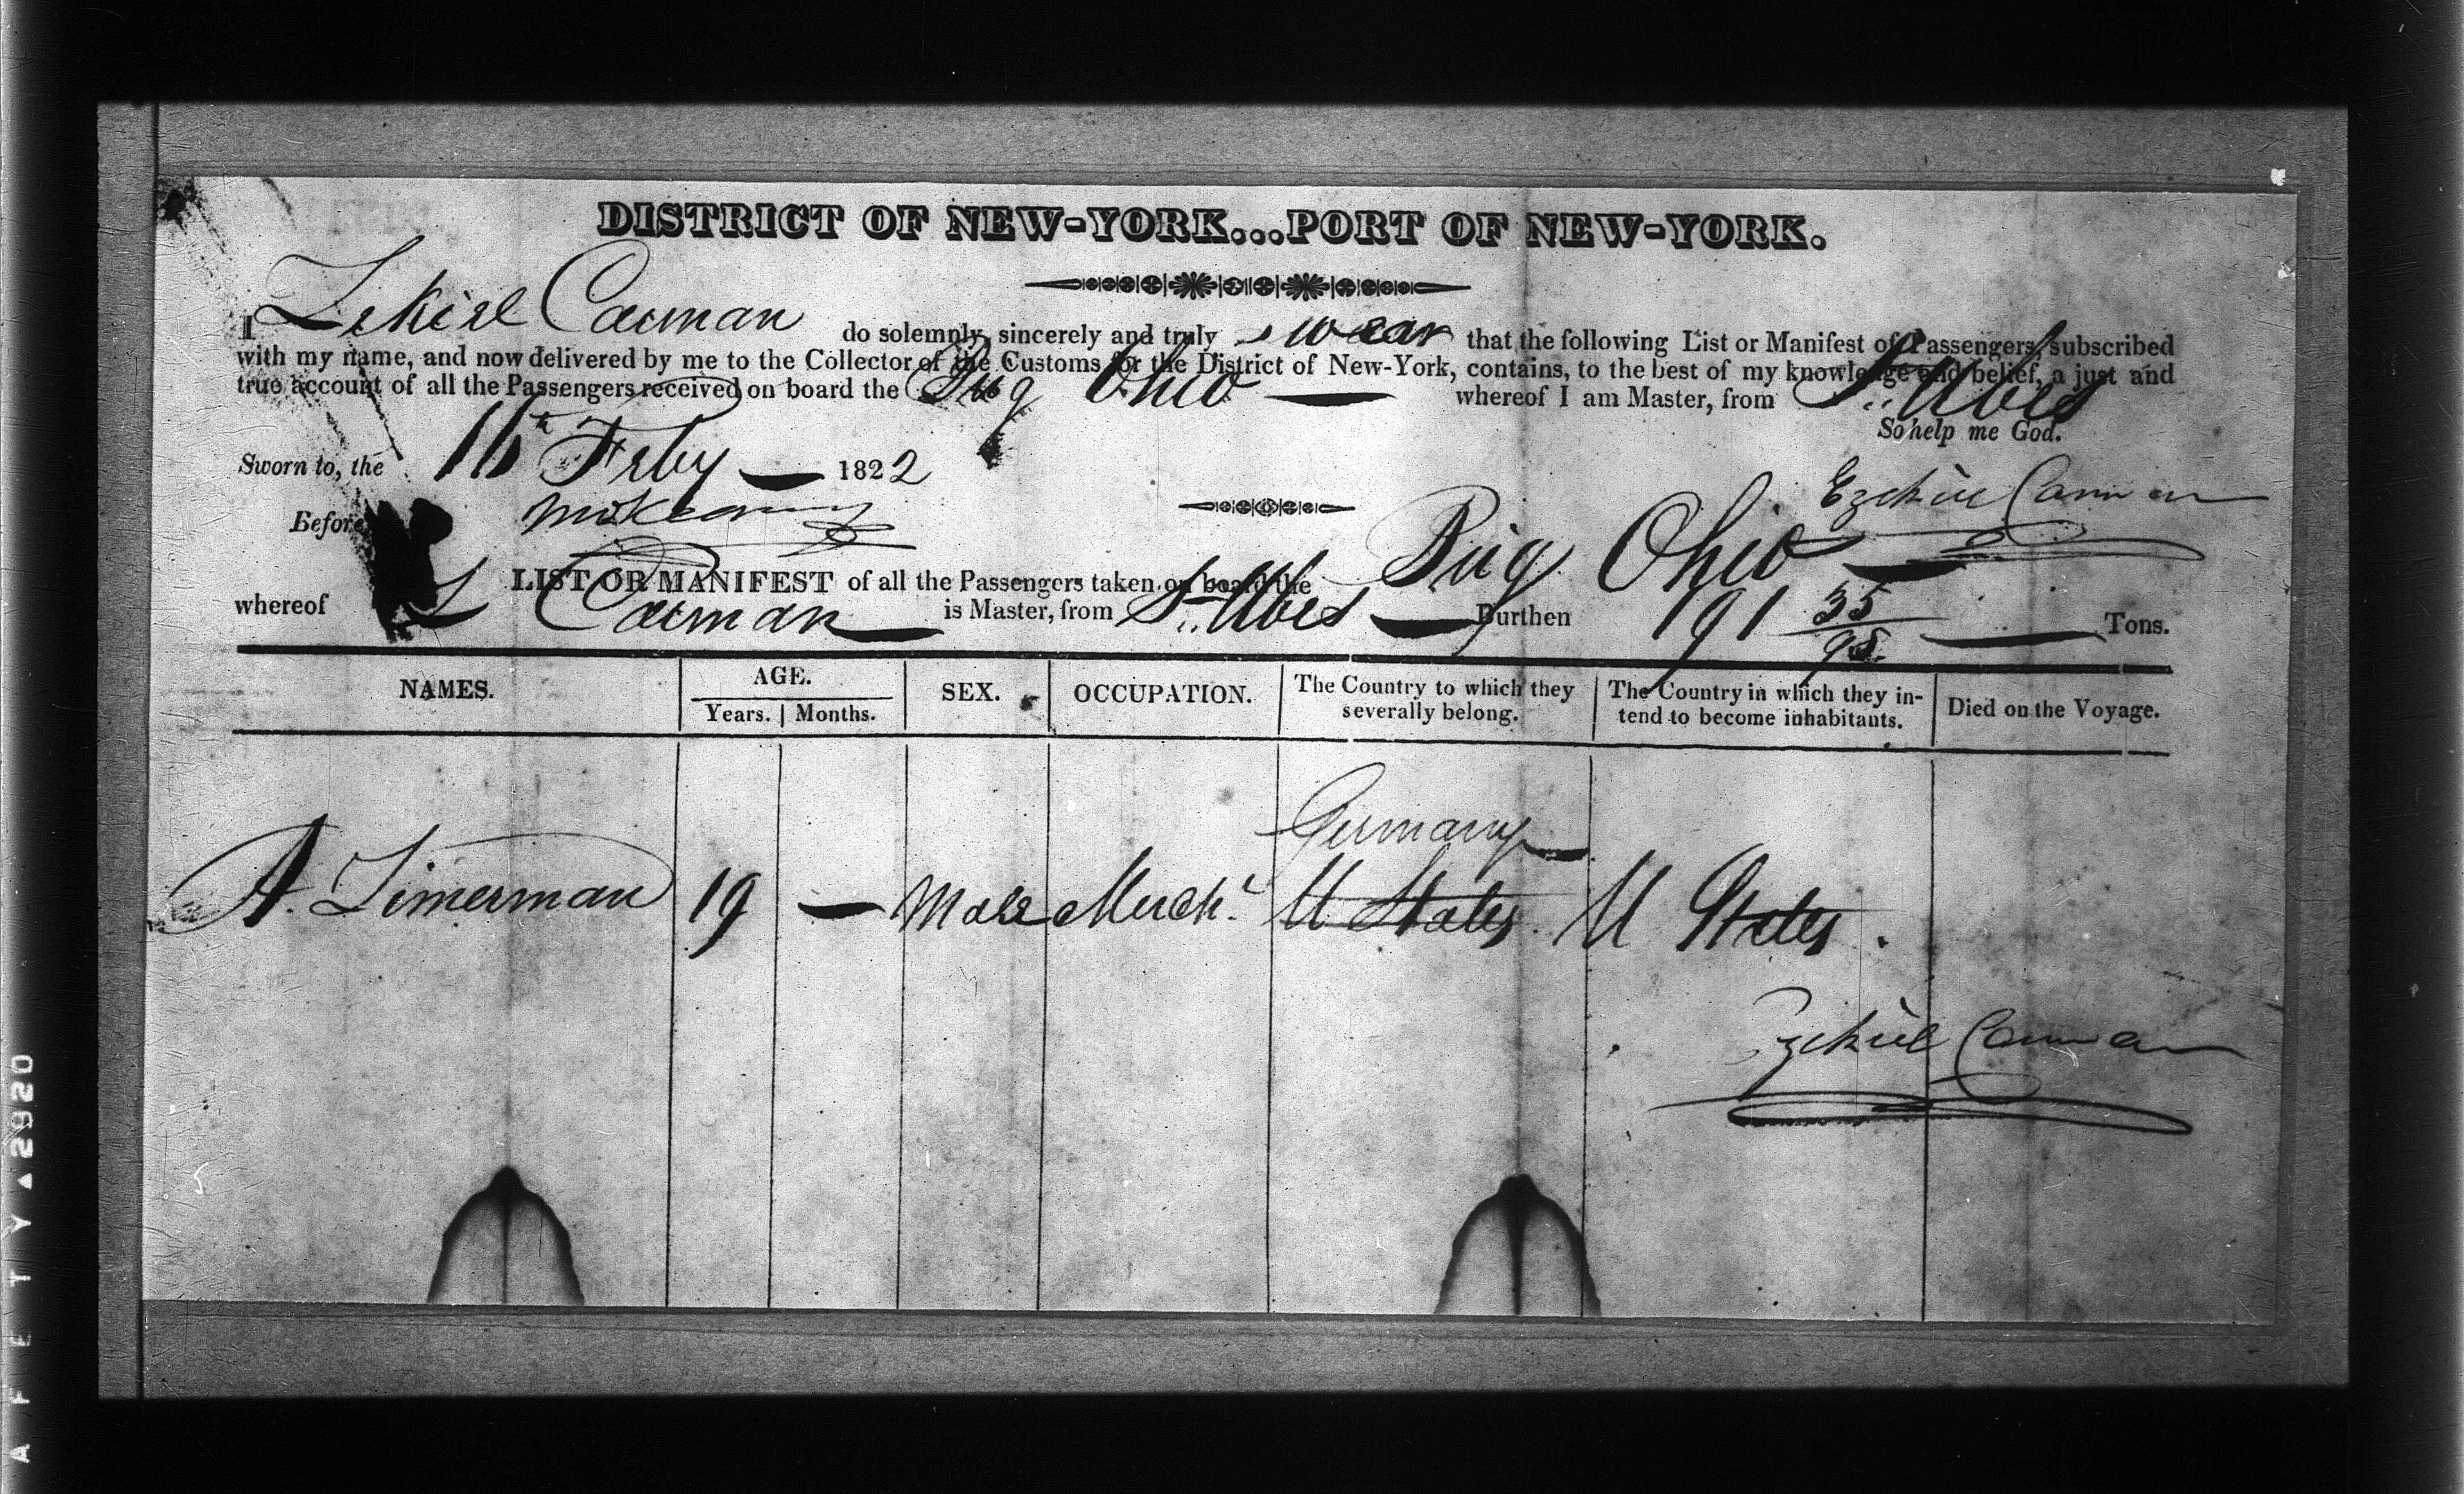 DISTRICT OF NEW-YORK...PORT OF NEW-YORK.
I Zekiel Carman do solemnly, sincerely and truly swear that the following List or Manifest of Passengers, subscribed
with my name, and now delivered by me to the Collector of the Customs for the District of New-York, contains, to the best of my knowledge and belief, a just and
true account of all the Passengers received on board the Brig Ohio whereof I am Master, from St. Ubes
So help me God.
Sworn to, the 16th Feby 1822
Ezekiel Carman
Before
LIST OR MANIFEST of all the Passengers taken on board the Brig Ohio
whereof Z Carman is Master, from St. Ubes Burthen 191 35/95 Tons.
NAMES. AGE. SEX. OCCUPATION. The Country to which they severally belong. The Country in which they intend to become inhabitants. Died on the Voyage.
Years. Months.
Germany
A. Zimerman 19 — Male Mercht. U States. U States.
Ezekiel Carman
AFETY▲2920